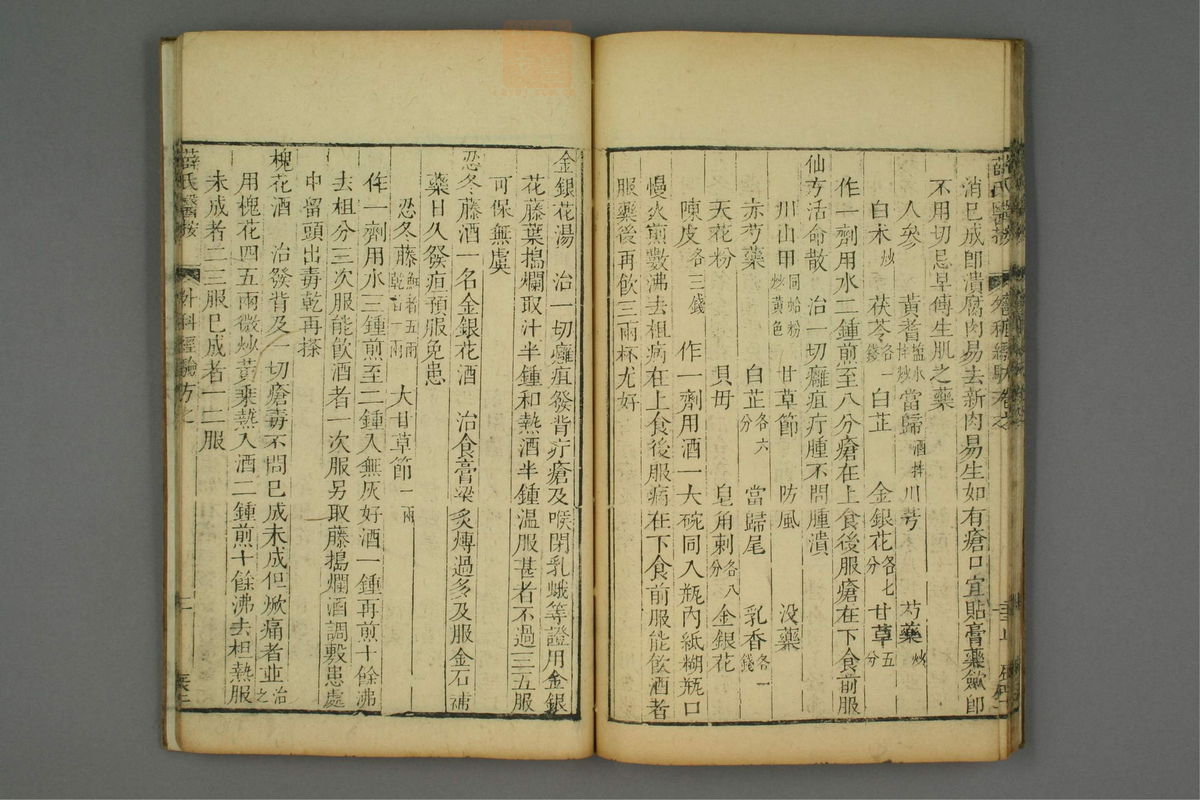 消已成卽潰腐肉易去新肉易生如有瘡口宜貼膏藥斂卽
不用切忌早傅生肌之藥
人參 黃耆鹽水拌炒 當歸酒拌 川芎 芍藥炒
白朮炒 茯苓各一錢 白芷 金銀花各七分 甘草五分
作一劑用水二鍾煎至八分瘡在上食後服瘡在下食前服
仙方活命散 治一切癰疽疔腫不問腫潰
川山甲同蛤粉炒黃色 甘草節 防風 没藥
赤芍藥 白芷各六分 當歸尾 乳香各一錢
天花粉 貝母 皂角刺各八分 金銀花
陳皮各三錢 作一劑用酒一大碗同入瓶內紙糊瓶口
慢火煎數沸去柤病在上食後服病在下食前服能飲酒者
服藥後再飲三兩杯尤好
金銀花湯 治一切癰疽發背疔瘡及喉閉乳蛾等證用金銀
花藤葉搗爛取汁半鍾和熱酒半鍾温服甚者不過三五服
可保無虞
忍冬藤酒一名金銀花酒 治食膏粱炙煿過多及服金石補
藥日久發疽預服免患
忍冬藤鮮者五兩乾者一兩 大甘草節一兩
作一劑用水三鍾煎至二鍾入無灰好酒一鍾再煎十餘沸
去柤分三次服能飲酒者一次服另取藤搗爛酒調敷患處
中留頭出毒乾再搽
槐花酒 治發背及一切瘡毒不問已成未成但焮痛者並治之
用槐花四五兩微炒黃乘熱入酒二鍾煎十餘沸去柤熱服
未成者二三服已成者一二服
薛氏醫按 外科經驗方之 二